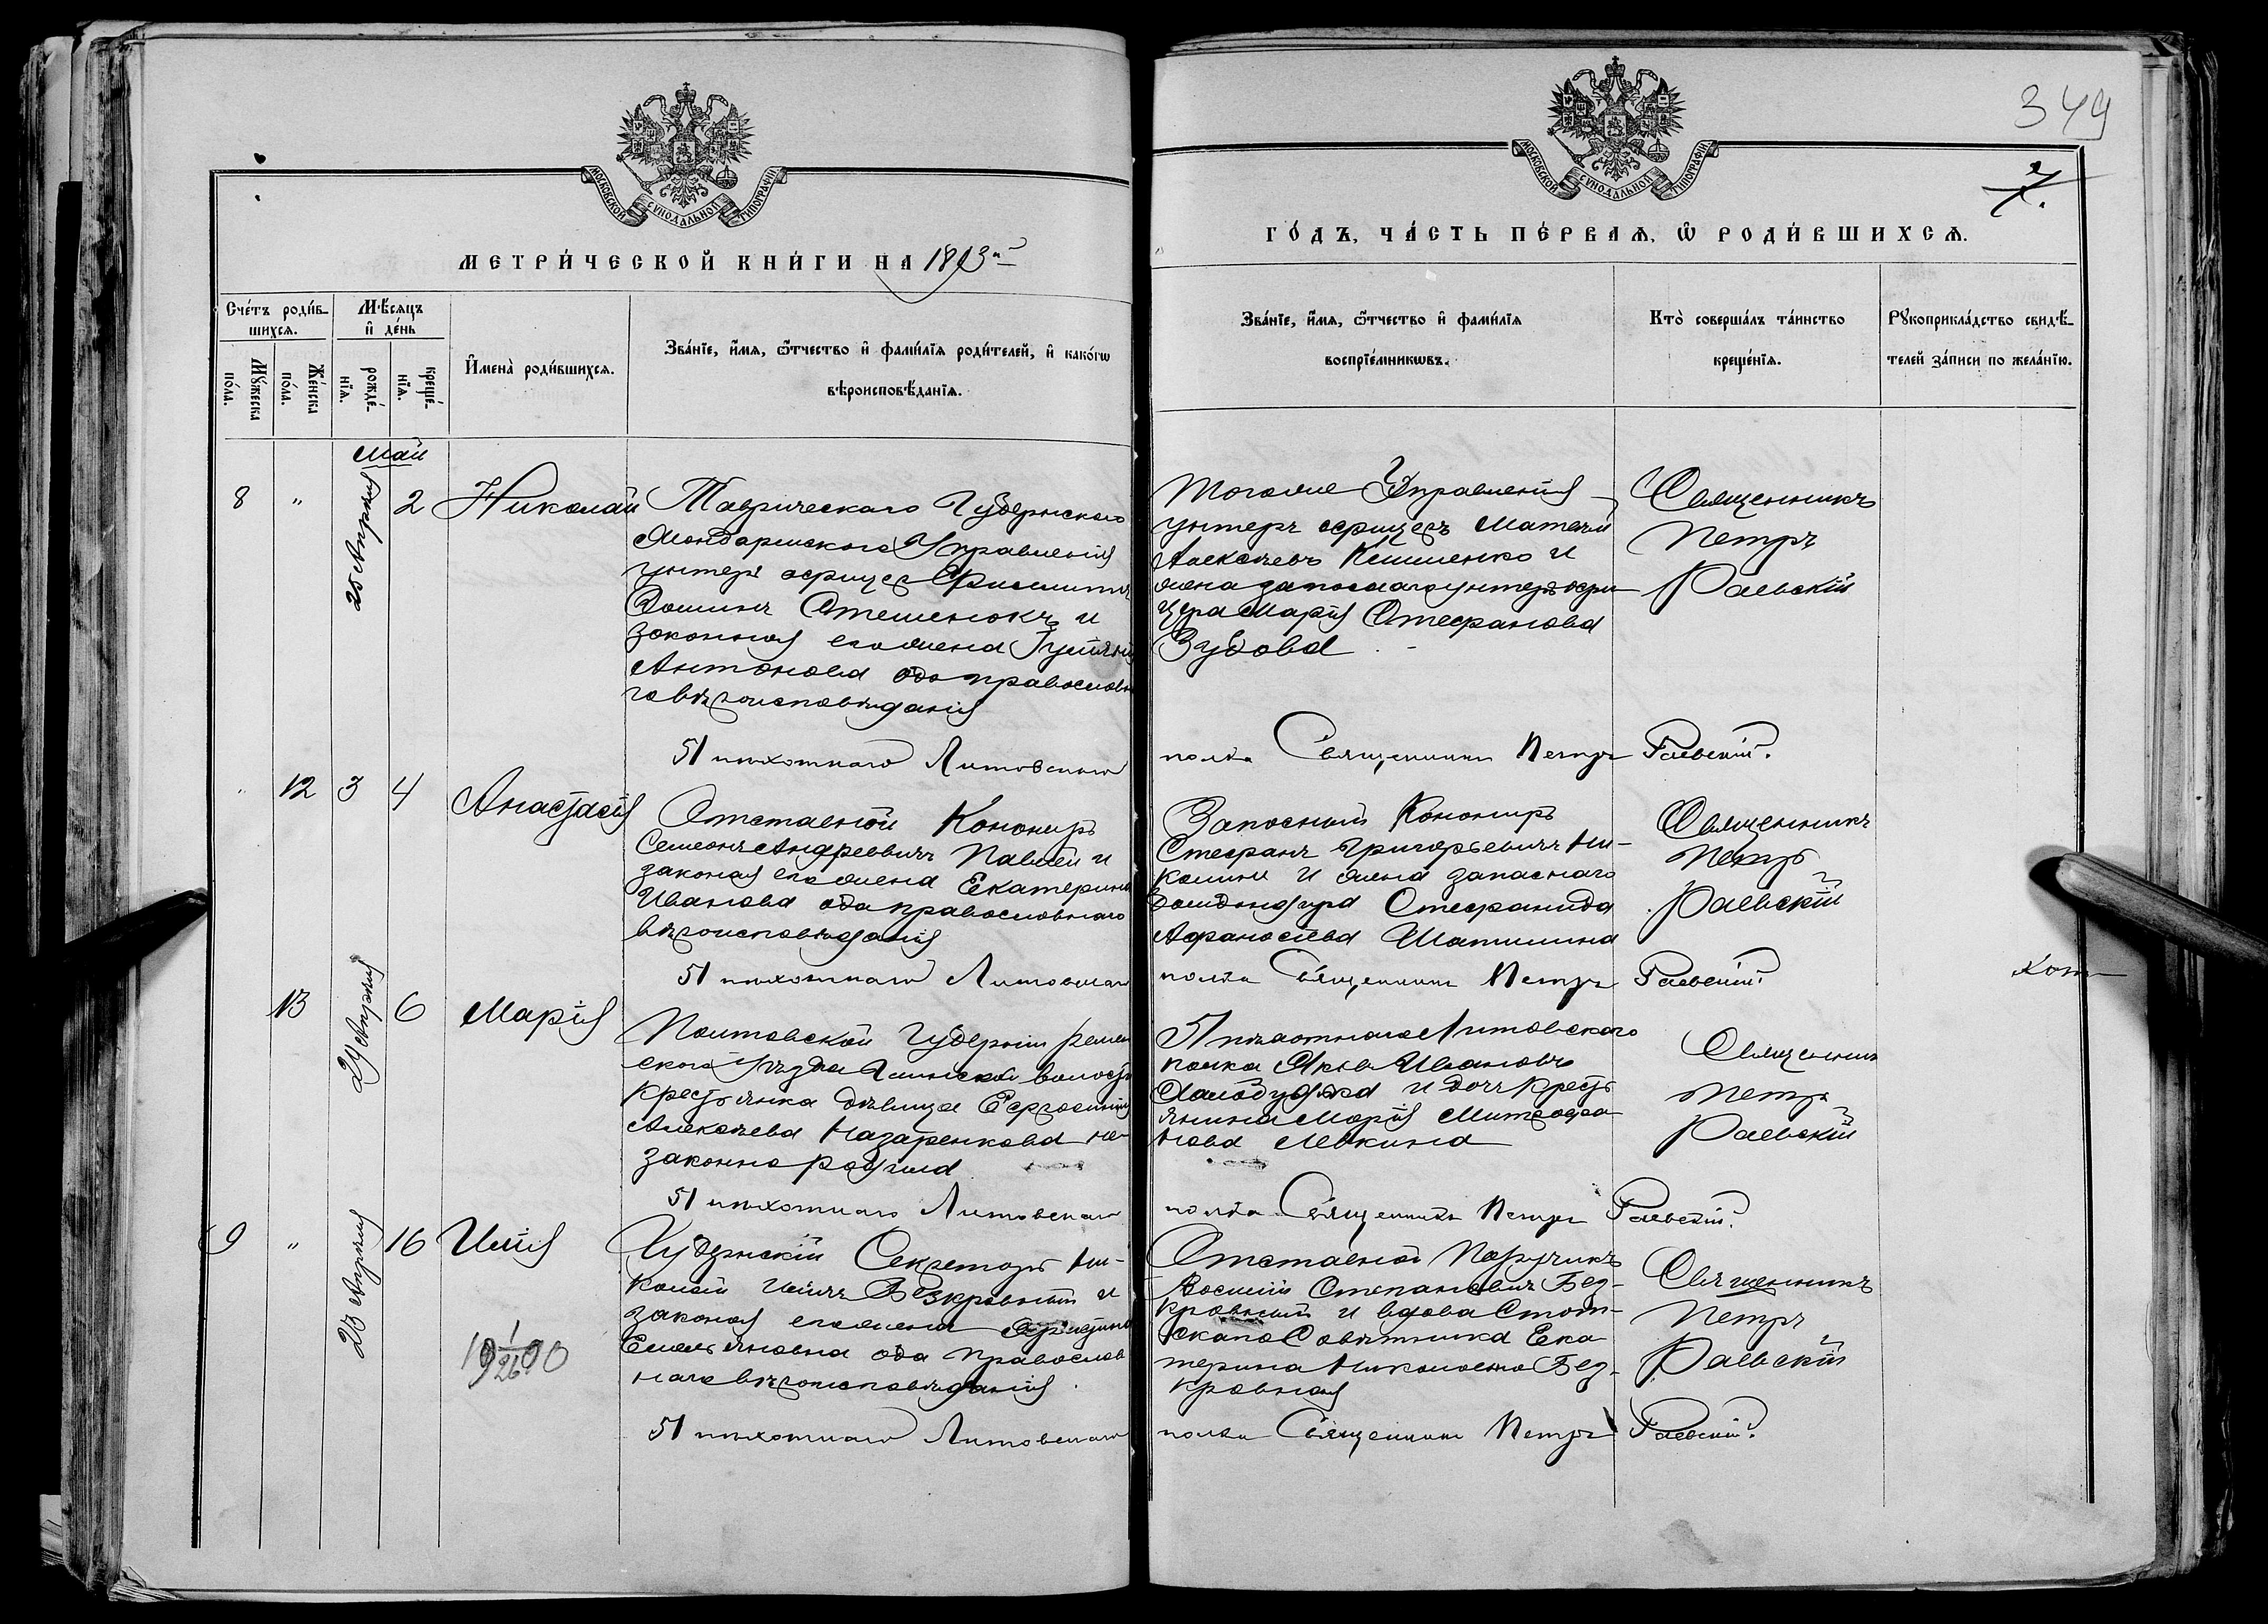 349
7.
МОСКОВСКОЙ СУНОДАЛЬНОЙ ТИПОГРАФІИ
МОСКОВСКОЙ СУНОДАЛЬНОЙ ТИПОГРАФІИ
МЕТРИ́ЧЕСКОЙ КНИ́ГИ НА 1893й
ГО́ДЪ, ЧА́СТЬ ПЕ́РВАѦ, Ѿ РОДИ́ВШИХСѦ.
Сче́тъ роди́в-
шихсѧ.
Мꙋ́жеска по́ла.
Же́нска по́ла.
Мѣ́сѧцъ
и҆ де́нь
рожде́-
нїѧ.
креще́-
нїѧ.
И҆мена̀ роди́вшихсѧ.
Зва́нїе, и҆́мѧ, ѻ҆́тчество и҆ фами́лїѧ роди́телей, и҆ како́гѡ
вѣроисповѣ́данїѧ.
Зва́нїе, и҆́мѧ, ѻ҆́тчество и҆ фами́лїѧ
воспрїе́мникѡвъ.
Кто̀ соверша́лъ та́инство
креще́нїѧ.
Рꙋкоприкла́дство свидѣ́-
телей за́писи по жела́нїю.
Май
8 " 25 Апрѣля 2 Николай
Таврическаго Губернскаго
Жандармскаго Управленія
унтеръ офицеръ
Стешенокъ и
законная его жена
Антонова оба православна
го вѣроисповѣданія
Тогоже Управленія
унтеръ офицеръ Матвѣй
Алексѣевъ и
жена запаснаго унтеръ офи
цера Марія Стефанова
Зубова
Священникъ
Петръ
Раевскій
51 пѣхотнаго Литовскаго полка Священникъ Петръ Раевскій.
" 12 3 4 Анастасія
Отставной Канониръ
Семеонъ Андреевичъ Павлей и
законая его жена Екатерина
Иванова оба православнаго
вѣроисповѣданія
Запасный Канониръ
Стефанъ Григорьевичъ Ни-
колинъ и жена запаснаго
Стефанида
Афанасіева Шатилина
Священникъ
Петръ
Раевскій
51 пѣхотнаго Литовскаго полка Священникъ Петръ Раевскій.
13 29 Апрѣля 6 Марія
Полтовской Губерніи
скаго уѣзда Глинской волости
Крестьянка дѣвица Евфросинія
Алексѣева Назаренкова не-
законно
51 пѣхотнаго Литовскаго
полка Яковъ Ивановъ
и дочь кресть
янина Марія Митрофа
нова
Священникъ
Петръ
Раевскій
51 пѣхотнаго Литовскаго полка Священникъ Петръ Раевскій.
9 " 28 Апрѣля 16 Илія
Губернскій Секретарь Ни-
колай Ильичъ Безкровный и
законая его жена
Емельяновна оба православ
наго вѣроисповѣданія.
Отставной Поручикъ
Василій Степановичъ Без-
кровный и вдова Стат-
скаго Совѣтника Ека
терина Николаевна Без-
кровная
Священникъ
Петръ
Раевскій
51 пѣхотнаго Литовскаго полка Священникъ Петръ Раевскій.